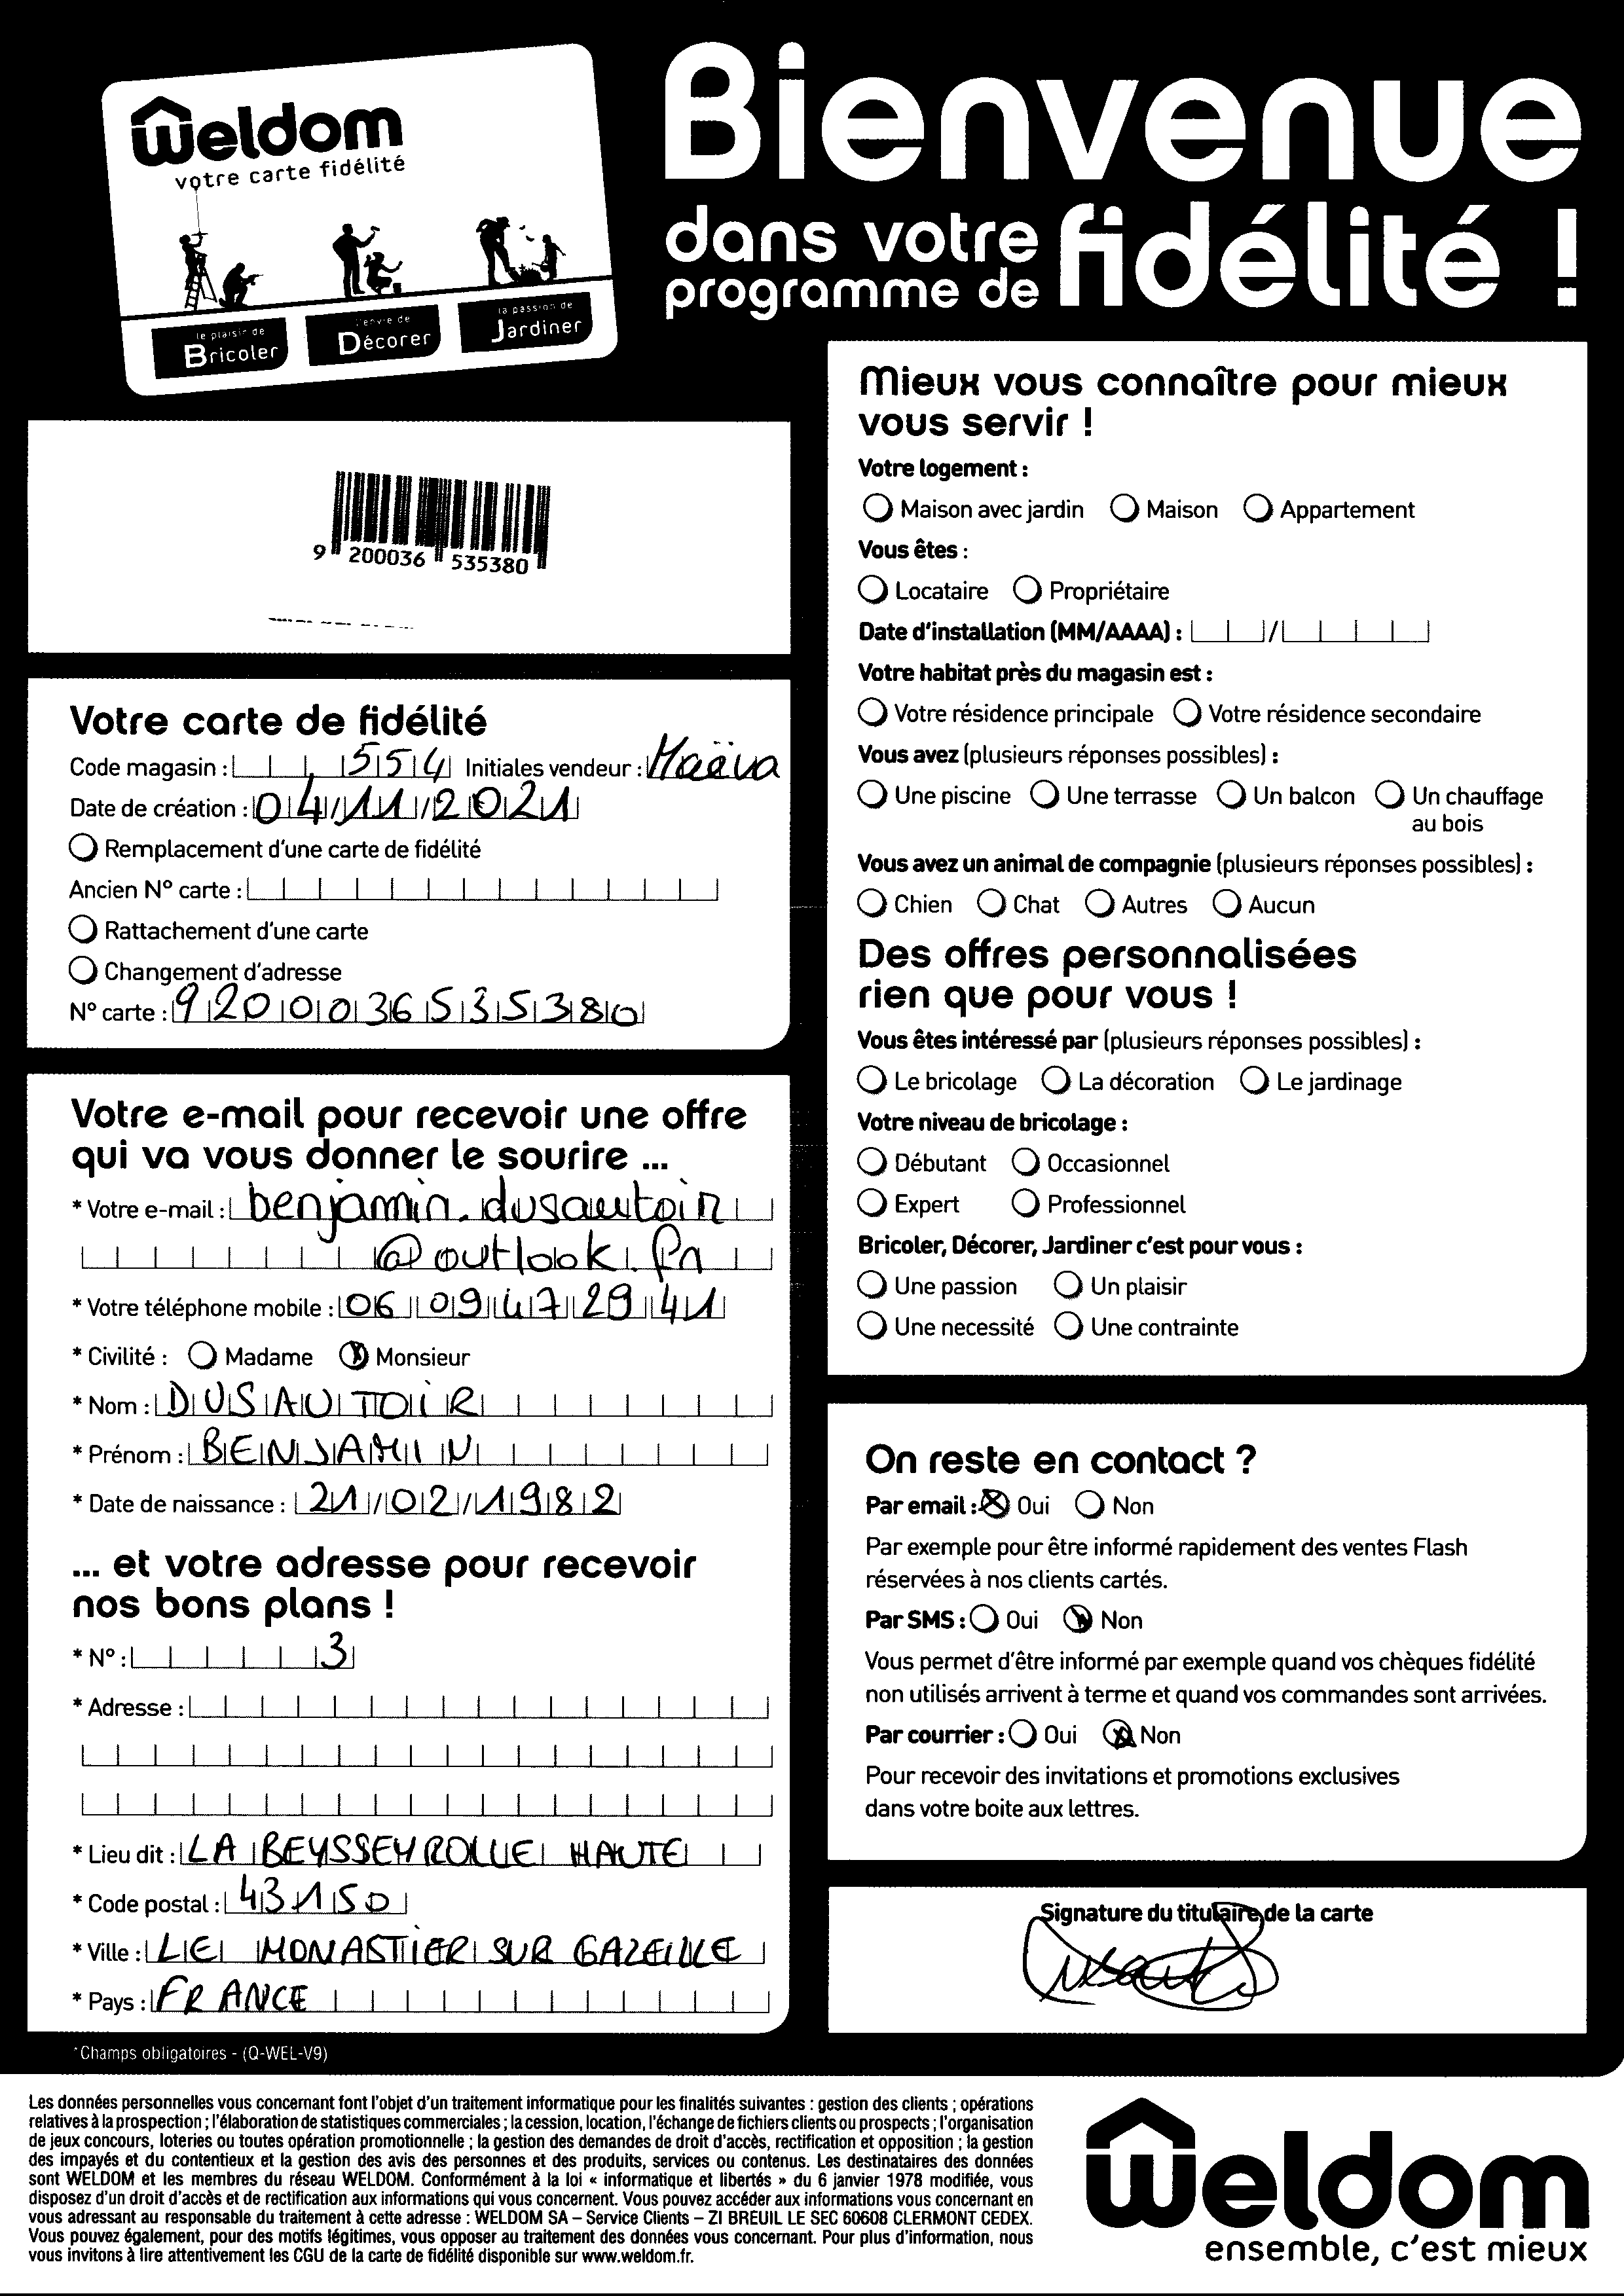 weldom
votre carte fidélité
le plaisir de
Bricoler
l'envie de
Décorer
la passion de
Jardiner
Bienvenue
dans votre
programme de fidélité !
9 200036 535380
Votre carte de fidélité
Code magasin : 554 Initiales vendeur : Maëva
Date de création : 04/11/2021
Remplacement d'une carte de fidélité
Ancien N° carte :
Rattachement d'une carte
Changement d'adresse
N° carte : 9200036535380
Votre e-mail pour recevoir une offre
qui va vous donner le sourire ...
* Votre e-mail : benjamin.dusautoir
@outlook.fr
* Votre téléphone mobile : 06 09 47 29 41
* Civilité : Madame Monsieur
* Nom : DUSAUTOIR
* Prénom : BENJAMIN
* Date de naissance : 21/02/1982
... et votre adresse pour recevoir
nos bons plans !
* N° : 3
* Adresse :
* Lieu dit : LA BEYSSEYROLLE HAUTE
* Code postal : 43150
* Ville : LE MONASTIER SUR GAZEILLE
* Pays : FRANCE
*Champs obligatoires - (Q-WEL-V9)
Mieux vous connaître pour mieux
vous servir !
Votre logement :
Maison avec jardin Maison Appartement
Vous êtes :
Locataire Propriétaire
Date d'installation (MM/AAAA) : /
Votre habitat près du magasin est :
Votre résidence principale Votre résidence secondaire
Vous avez (plusieurs réponses possibles) :
Une piscine Une terrasse Un balcon Un chauffage
au bois
Vous avez un animal de compagnie (plusieurs réponses possibles) :
Chien Chat Autres Aucun
Des offres personnalisées
rien que pour vous !
Vous êtes intéressé par (plusieurs réponses possibles) :
Le bricolage La décoration Le jardinage
Votre niveau de bricolage :
Débutant Occasionnel
Expert Professionnel
Bricoler, Décorer, Jardiner c'est pour vous :
Une passion Un plaisir
Une necessité Une contrainte
On reste en contact ?
Par email : Oui Non
Par exemple pour être informé rapidement des ventes Flash
réservées à nos clients cartés.
Par SMS : Oui Non
Vous permet d'être informé par exemple quand vos chèques fidélité
non utilisés arrivent à terme et quand vos commandes sont arrivées.
Par courrier : Oui Non
Pour recevoir des invitations et promotions exclusives
dans votre boite aux lettres.
Signature du titulaire de la carte
Les données personnelles vous concernant font l'objet d'un traitement informatique pour les finalités suivantes : gestion des clients ; opérations
relatives à la prospection ; l'élaboration de statistiques commerciales ; la cession, location, l'échange de fichiers clients ou prospects ; l'organisation
de jeux concours, loteries ou toutes opération promotionnelle ; la gestion des demandes de droit d'accès, rectification et opposition ; la gestion
des impayés et du contentieux et la gestion des avis des personnes et des produits, services ou contenus. Les destinataires des données
sont WELDOM et les membres du réseau WELDOM. Conformément à la loi « informatique et libertés » du 6 janvier 1978 modifiée, vous
disposez d'un droit d'accès et de rectification aux informations qui vous concernent. Vous pouvez accéder aux informations vous concernant en
vous adressant au responsable du traitement à cette adresse : WELDOM SA – Service Clients – ZI BREUIL LE SEC 60608 CLERMONT CEDEX.
Vous pouvez également, pour des motifs légitimes, vous opposer au traitement des données vous concernant. Pour plus d'information, nous
vous invitons à lire attentivement les CGU de la carte de fidélité disponible sur www.weldom.fr.
weldom
ensemble, c'est mieux